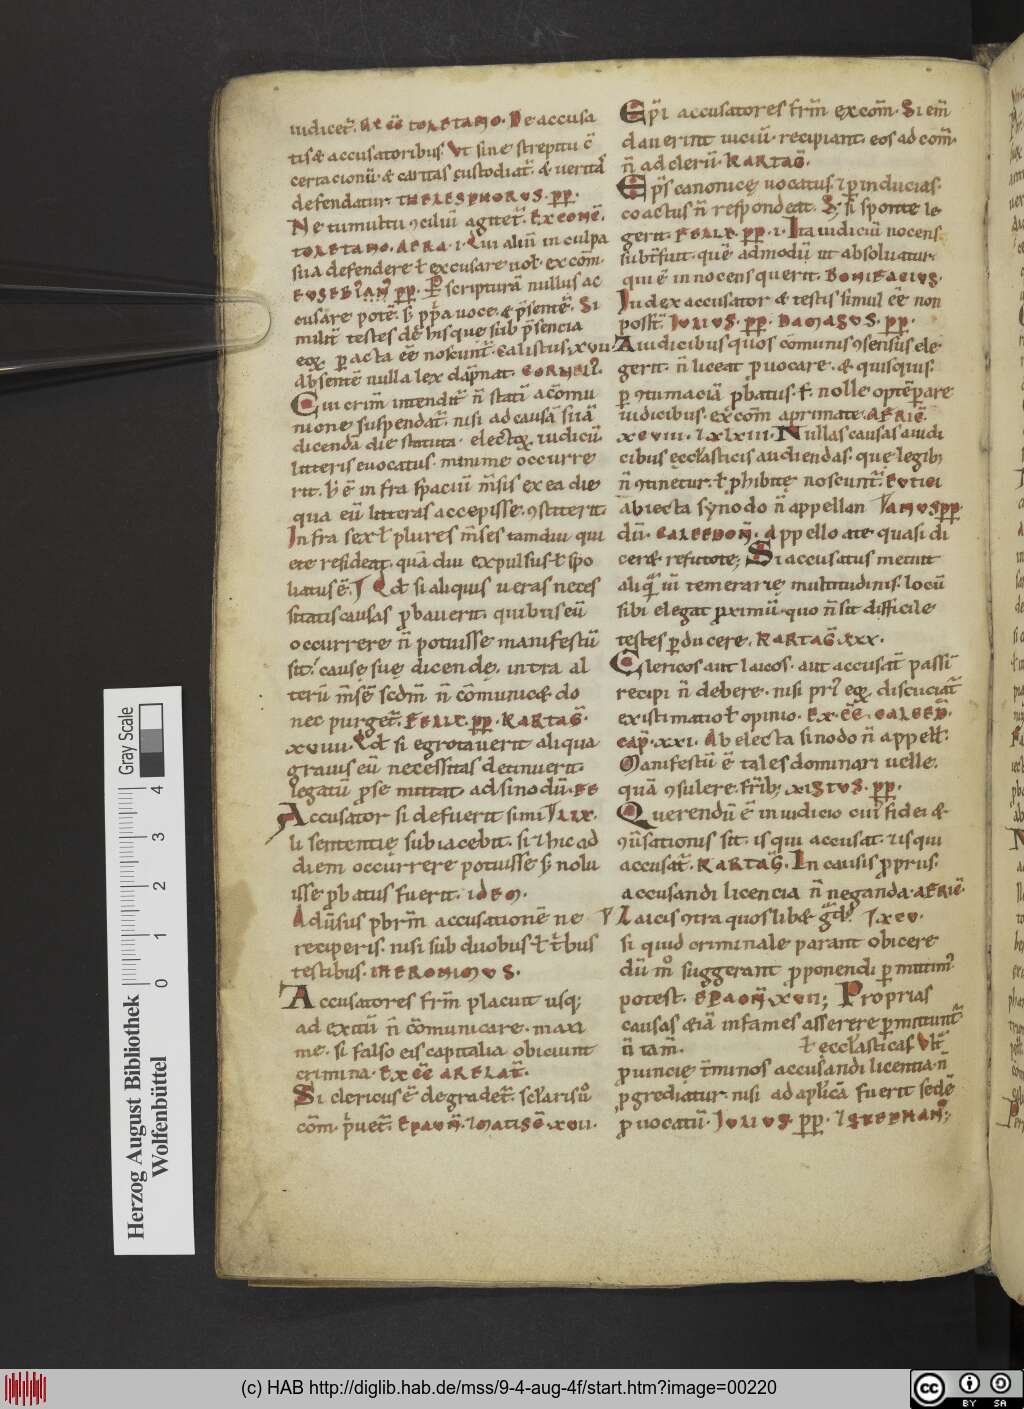 iudicet᷑. Ex cc̄ TOLETANO. De accusa
tis & accusatoribus. Ut sine strepitu c̄
certacionū & caritas custodiat᷑. & uerita᷑
defendatur. THELESPHORUS. pp̄.
Ne tumultu ↄciliū agitet᷑. EX CONC̄.
TOLETANO. AFRA. I. Qui aliū in culpa
sua defendere ł excusare uol̄. excom̄.
EUSEBIꝰ pp̄. P scripturā nullus ac
cusare potē. s; ꝓpa uoce. & p̄sente᷑. Si
milit᷑ testes de hisque sub p̄sencia
eoꝝ. ꝑacta eē noscunt᷑. CALISTUS. XVII.
Absentē nulla lex dāpnat. CORNELIꝰ.
Cui crim̄ intendit᷑ n̄ statī a cōmu
nione suspendat᷑. nisi ad causā suā
dicendā die statuta. electoꝝ. iudicū.
litteris euocatus. minime occurre
rit. h̄ ē infra spaciū m̄sis ex ea die
qua eū litteras accepisse. ↄstiterit.
Infra sex ł plures m̄ses tamdiu qui
ete resideat. quā diu expulsus ł spo
liatus ē. Qd̄ si aliquis ueras neces
sitatis causas probauerit. quibus eū
occurrere n̄ potuisse manifestū
sit. causę suę dicendę. intra al
terū m̄sē scd̄m n̄ cōmunicā do
nec purget᷑. FELIX. pp̄. KARTAḠ.
XVIIII. Qd̄ si egrotauerit aliqua
grauis eū necessitas detinuerit.
legatū ꝓse mittat ad sinodū. FE
Accusator si defuerit simi LIX.
li sententię subiacebit. si & hic ad
diem occurrere potuisse & nolu
isse probatus fuerit. IDEM.
Aduersus pbr̄m accusationē ne
reciperis. nisi sub duobus ł t̄bus
testibus. IHERONIMUS.
Accusatores fr̄m placuit usq;
ad exitū n̄ cōmunicare. maxi
me. si falso eis capitalia obiciunt
crimina. EX CC̄ ARELAT᷑.
Si clericus ē degradet᷑. sclaris ū
cōm. p̄uet᷑. EPAON̄. & MATISC̄. XVII.
Ep̄i accusatores fr̄m excom̄. Si em̄
dauerint uiciū. recipiant. eos ad com̄.
n̄ ad clerū. KARTAḠ.
Ep̄s canonicę uocatus & ꝑ inducias.
coactus n̄ respondeat. & si sponte le
gerit. FELIX. pp̄. I. Ita iudiciū nocens
subt᷑fuit. quē admodū ut absoluatur.
qui ē innocens querit. BONIFACIUS.
Iudex accusator & testis simul eē non
possit. IULIUS. pp̄. DAMASUS. pp̄.
A iudicibus quos cōmunis ↄsensus ele
gerit. n̄ liceat prouocare. & quisquis.
ꝑ ↄtumaciā pbatus. f. nolle optēperare
iudicibus. excom̄ a primate. AFRIC̄.
XCVIII. & XLXIII. Nullas causas a iudi
cibus ęccl̄asticis audiendas. quę legib;
n̄ ↄtinetur. ł phibitę noscunt᷑. EUTICI
Abiecta synodo n̄ appellan ANUS pp̄.
dū. CALCEDON̄. Appello a te quasi di
ceræ refutote; Si accusatus metuit
aliqᷓ uī temerarię multitudinis. locū
sibi elegat proximū. quo n̄ sit difficile
testes ꝑducere. KARTAḠ. XXX.
Clericos aut laicos. aut accusat᷑ passī
recipi n̄ debere. nisi pr̄ eoꝝ. disiciat᷑
existimatio ł opinio. EX. C̄C̄. CALCED̄.
CAP̄. XXI. Ab electa sinodo n̄ appell̄.
Manifestū ē tales dominari uelle.
quā ↄsulere. fr̄ib;. XISTUS. pp̄.
Querendū ē in iudicio cuiꝰ fidei &
ↄū̄sationis sit. is qui accusat. & is qui
accusat᷑. KARTAḠ. In causis proprus.
accusandi licencia n̄ neganda. AFRIC̄.
Laicis ↄtra quos libæ XCV.
si quid criminale parant obicere
dū m̊ suggerant proponendi ꝑmittim᷒
potest. EPAON̄. XVII; Proprias
causas & iā infames asserere ꝑmittunt᷑
n̄ tam̄. ł ecclasticas Ult᷑
prouincię t̄minos accusandi licentia n̄
progrediatur. nisi ad aplicā fuerit sedē
prouocatū. IULIUS. pp̄. & STEPHANꝰ;
Herzog August Bibliothek
Wolfenbüttel
Gray Scale
0 1 2 3 4
(c) HAB http://diglib.hab.de/mss/9-4-aug-4f/start.htm?image=00220
cc BY SA